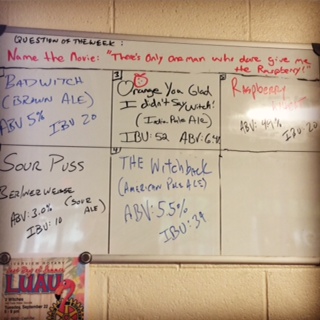 QUESTION OF THE WEEK:
Name the Movie: "There's only one man who dare give me
the Raspberry!"
BAD WITCH
(BROWN ALE)
ABV 5%
IBU 20
3
Orange You Glad
I didn't Say Witch!
(India Pale Ale)
IBU: 52 ABV: 6.4%
Raspberry
IBU: 20
SOUR PUSS
BERLINER WEISSE
(SOUR ALE)
ABV: 3.0%
IBU: 10
4
THE Witchback
(AMERICAN PALE ALE)
ABV: 5.5%
IBU: 34
LUAU